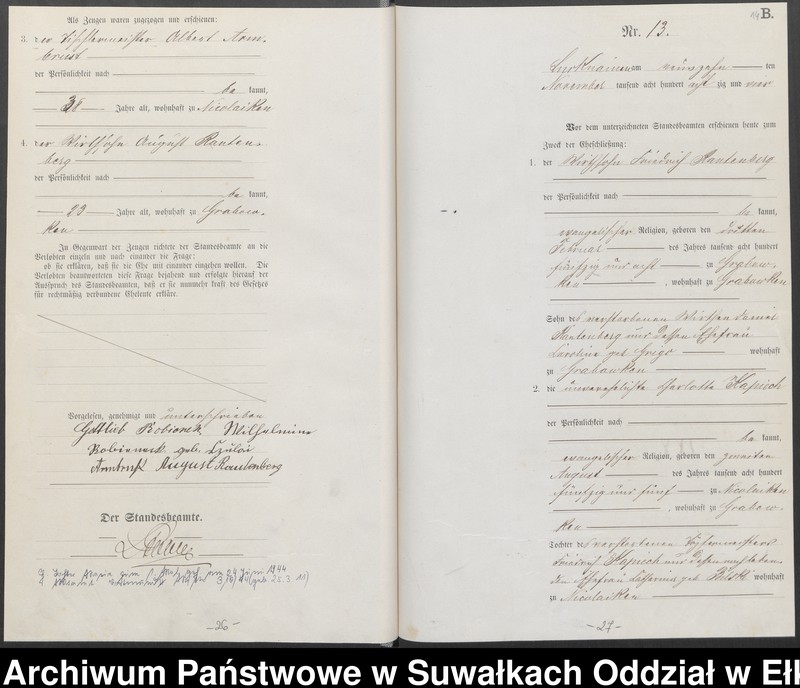 Als Zeugen waren zugezogen und erschienen:
3. der Fischermeister Albert Arm-
brust
der Persönlichkeit nach
be kannt,
38 Jahre alt, wohnhaft zu Nicolaiken
4. der Wirthssohn August Rauten-
berg
der Persönlichkeit nach
be kannt,
23 Jahre alt, wohnhaft zu Grabow-
ken
In Gegenwart der Zeugen richtete der Standesbeamte an die
Verlobten einzeln und nach einander die Frage:
ob sie erklären, daß sie die Ehe mit einander eingehen wollen. Die
Verlobten beantworteten diese Frage bejahend und erfolgte hierauf der
Ausspruch des Standesbeamten, daß er sie nunmehr kraft des Gesetzes
für rechtmäßig verbundene Eheleute erkläre.
Vorgelesen, genehmigt und unterschrieben
Gottlieb Robionek Wilhelmine
Robioneck geb. Czulai
Armbrust August Rautenberg
Der Standesbeamte.
24 Juni 1944
-26-
14 B.
Nr. 13.
am neunzehn ten
November tausend acht hundert acht zig und vier
Vor dem unterzeichneten Standesbeamten erschienen heute zum
Zweck der Eheschließung:
1. der Wirthssohn Friedrich Rautenberg
der Persönlichkeit nach
be kannt,
evangelischer Religion, geboren den dritten
Februar des Jahres tausend acht hundert
fünfzig und acht zu Grabow-
ken, wohnhaft zu Grabowken
Sohn des verstorbenen Wirthen Daniel
Rautenberg und dessen Ehefrau
Caroline geb. Grigo wohnhaft
zu Grabowken
2. die unverehelichte Charlotte Kapich
der Persönlichkeit nach
be kannt,
evangelischer Religion, geboren den zweiten
August des Jahres tausend acht hundert
fünfzig und fünf zu Nicolaiken
, wohnhaft zu Grabow-
ken
Tochter des verstorbenen Fischermeisters
Friedrich Kapich und dessen
Ehefrau Catharina geb. wohnhaft
zu Nicolaiken
-27-
Archiwum Państwowe w Suwałkach Oddział w Ełk